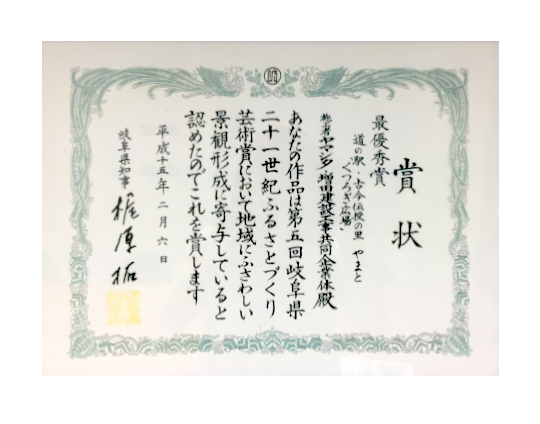 賞状
最優秀賞
道の駅・古今伝授の里 やまと
くつろぎ広場
施工者 ヤマシタ・増田建設工事共同企業体殿
あなたの作品は第五回岐阜県
二十一世紀ふるさとづくり
芸術賞において地域にふさわしい
景観形成に寄与していると
認めたのでこれを賞します
平成十五年二月六日
岐阜県知事 梶原拓